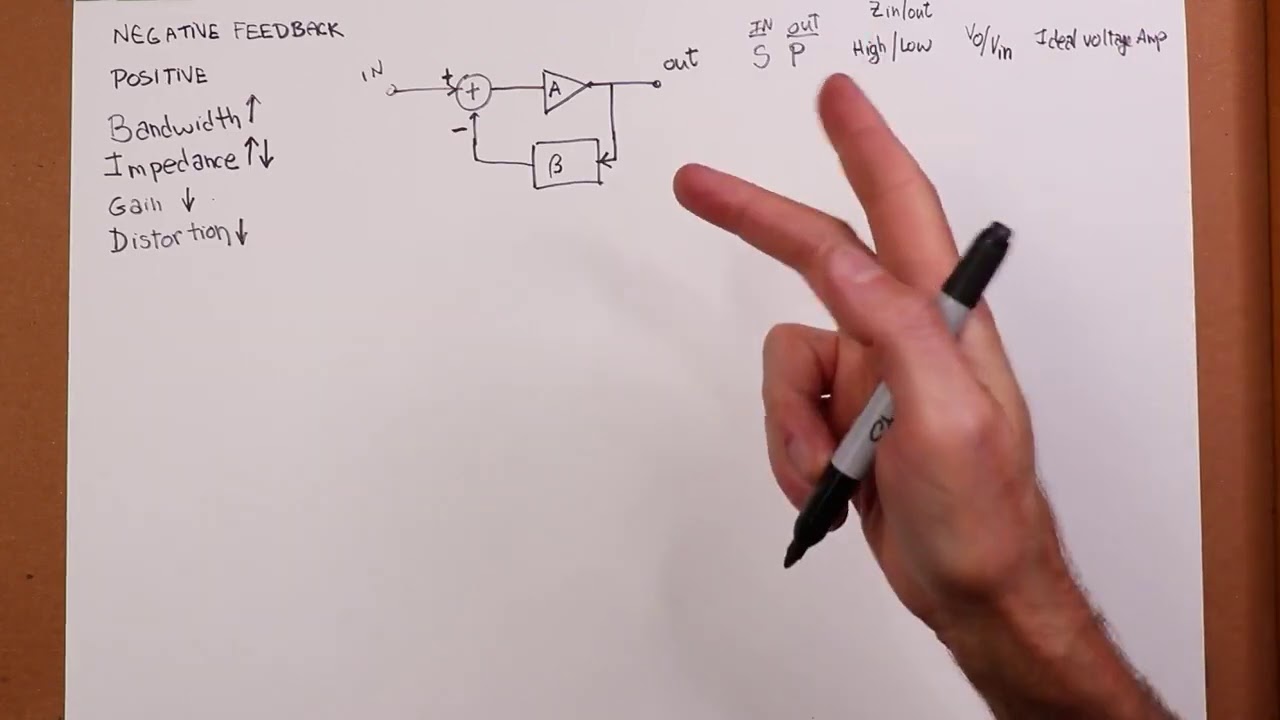 NEGATIVE FEEDBACK
POSITIVE
Bandwidth ↑
Impedance ↑↓
Gain ↓
Distortion ↓
IN
+
+
-
A
β
out
IN out Zin/out
S P High/Low Vo/Vin Ideal voltage Amp